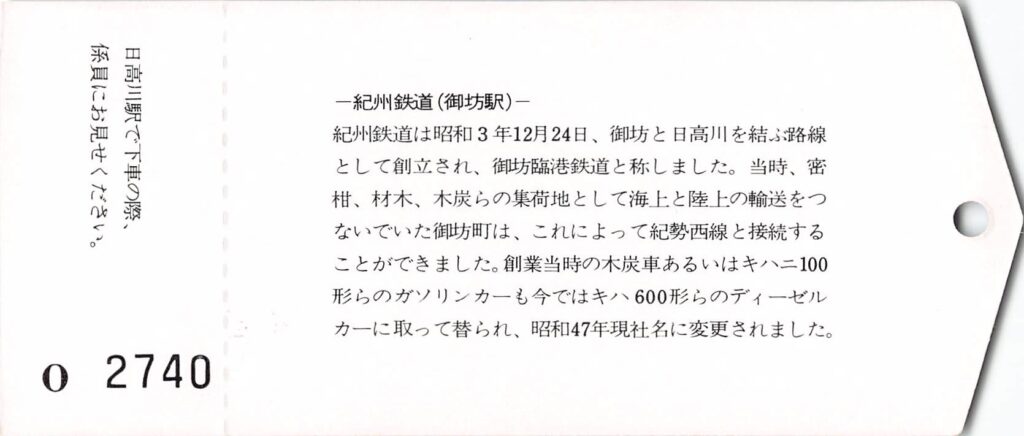 日高川駅で下車の際、
係員にお見せください。
O 2740
－紀州鉄道(御坊駅)－
紀州鉄道は昭和3年12月24日、御坊と日高川を結ぶ路線
として創立され、御坊臨港鉄道と称しました。当時、密
柑、材木、木炭らの集荷地として海上と陸上の輸送をつ
ないでいた御坊町は、これによって紀勢西線と接続する
ことができました。創業当時の木炭車あるいはキハニ100
形らのガソリンカーも今ではキハ600形らのディーゼル
カーに取って替られ、昭和47年現社名に変更されました。